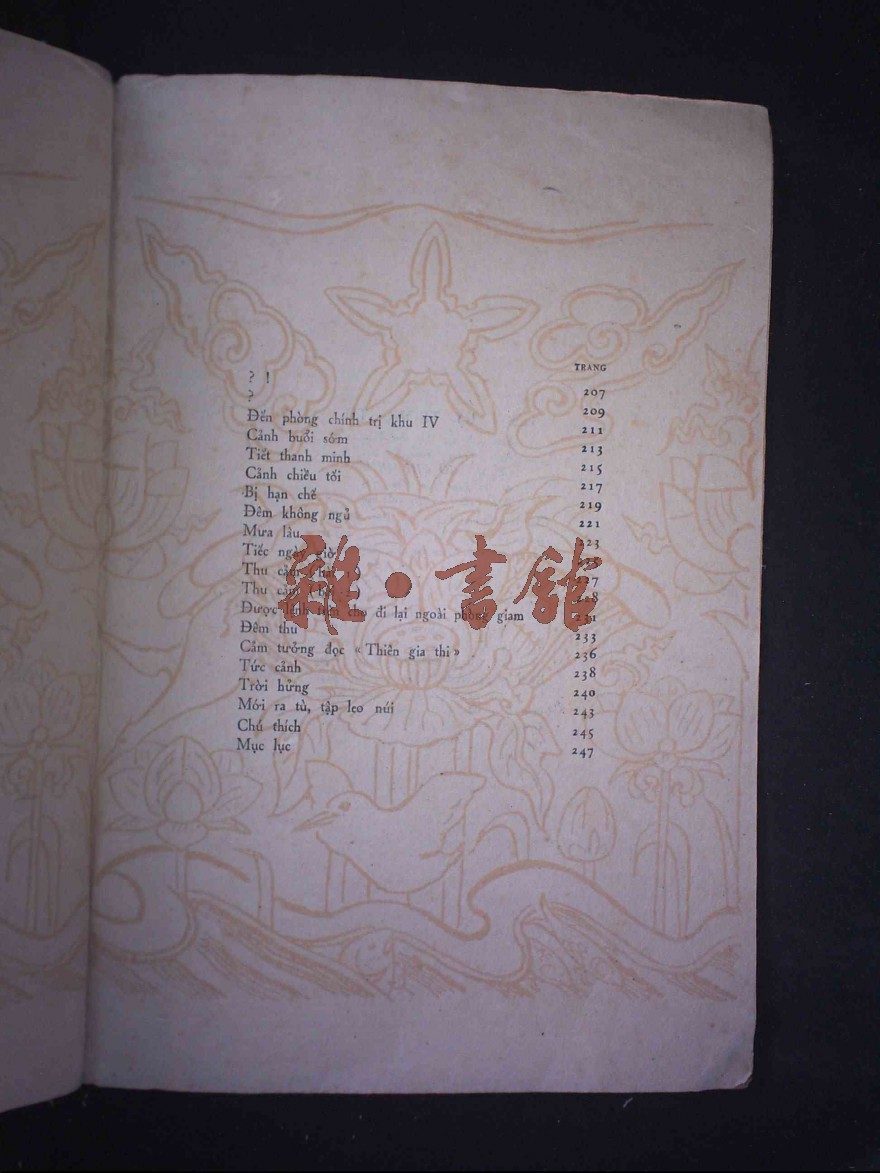 TRANG
? ! 207
? 209
Đến phòng chính trị khu IV 211
Cảnh buổi sớm 213
Tiết thanh minh 215
Cảnh chiều tối 217
Bị hạn chế 219
Đêm không ngủ 221
Mưa lâu 223
Tiếc ngày giờ
Thu cảm 227
Thu cảm 228
Được lệnh cho đi lại ngoài phòng giam 231
Đêm thu 233
Cảm tưởng đọc « Thiên gia thi » 236
Tức cảnh 238
Trời hửng 240
Mới ra tù, tập leo núi 243
Chú thích 245
Mục lục 247
雜·書館